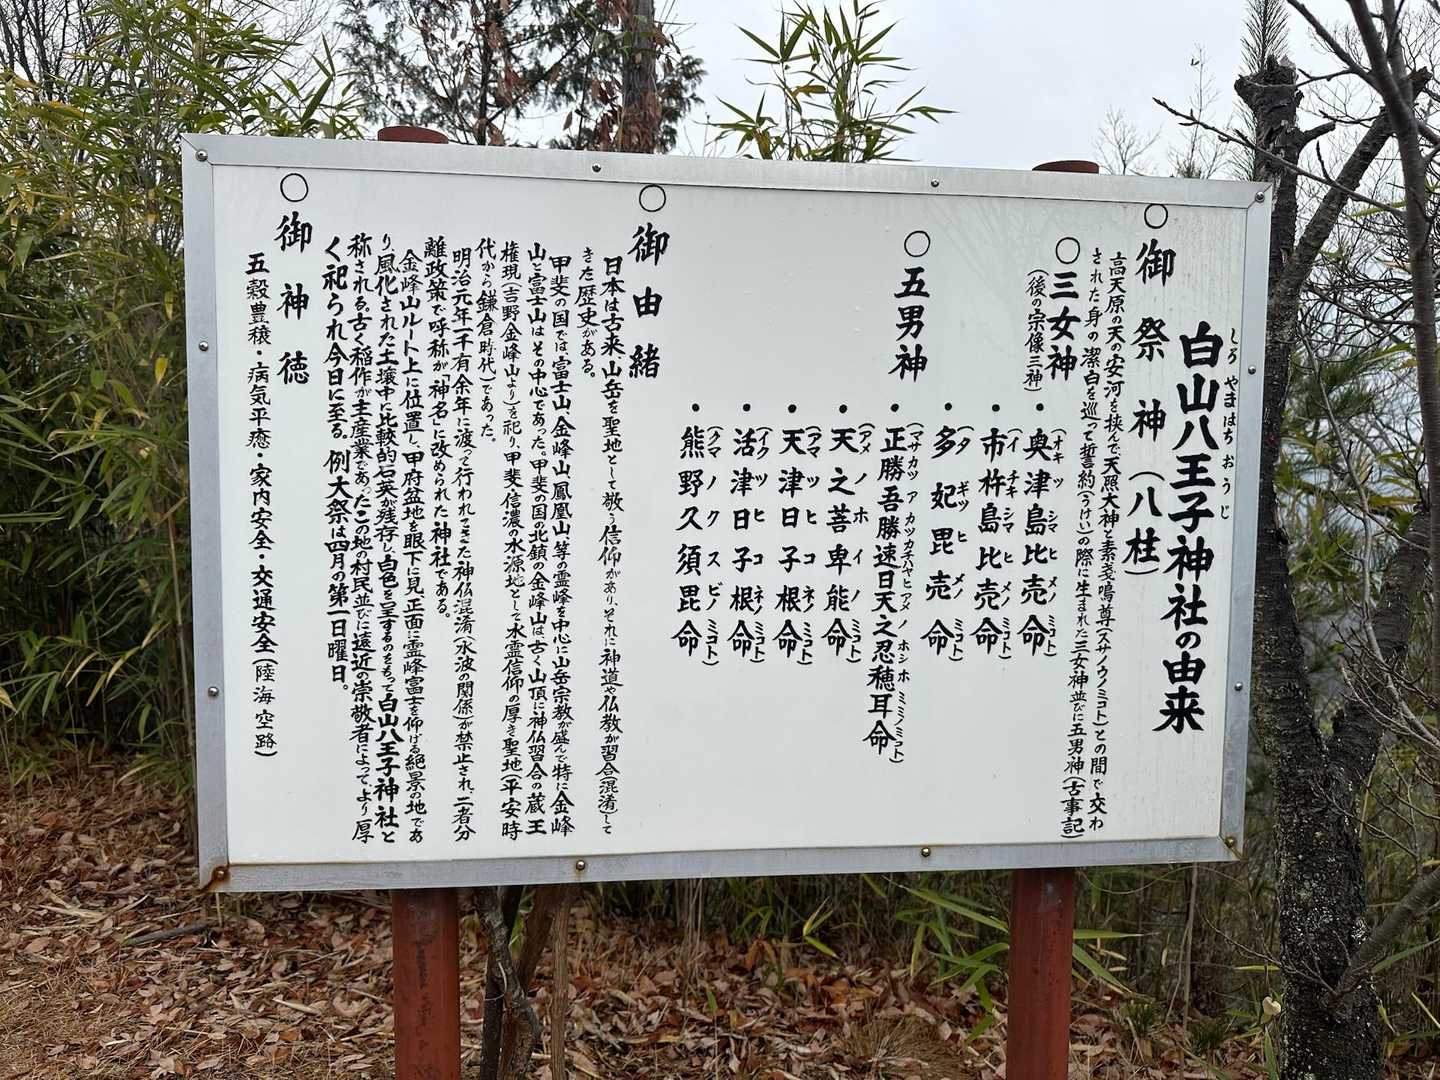 白山八王子神社の由来
しろやまはちおうじ
○御祭神（八柱）
高天原の天の安河を挟んで、天照大神と素戔嗚尊（スサノウノミコト）との間で交わ
された身の潔白を巡って誓約（うけい）の際に生まれた三女神並びに五男神（古事記）
○三女神
（後の宗像三神）
・奥津島比売命
（オキツシマヒメノミコト）
・市杵島比売命
（イチキシマヒメノミコト）
・多妃毘売命
（タギツヒメノミコト）
○五男神
・正勝吾勝速日天之忍穂耳命
（マサカツアカツカチハヤヒアメノホシホミミノミコト）
・天之菩卑能命
（アメノホイノミコト）
・天津日子根命
（アマツヒコネノミコト）
・活津日子根命
（イクツヒコネノミコト）
・熊野久須毘命
（クマノクスビノミコト）
○御由緒
日本は古来、山岳を聖地として敬う信仰があり、それに神道や仏教が習合（混淆）して
きた歴史がある。
甲斐の国では、富士山、金峰山、鳳凰山、等の霊峰を中心に山岳宗教が盛んで特に金峰
山と富士山はその中心であった。甲斐の国の北鎮の金峰山は、古く山頂に神仏習合の蔵王
権現（吉野金峰山より）を祀り、甲斐、信濃の水源地として水霊信仰の厚き聖地（平安時
代から鎌倉時代）であった。
明治元年一千有余年に渡って行われてきた神仏混淆（水波の関係）が禁止され、二者分
離政策で呼称が「神名」に改められた神社である。
金峰山ルート上に位置し、甲府盆地を眼下に見、正面に霊峰富士を仰げる絶景の地であ
り、風化された土壌中に比較的石英が残存し白色を呈するのをもって白山八王子神社と
称される。古く稲作が主産業であったこの地の村民並びに遠近の崇敬者によってより厚
く祀られ今日に至る。例大祭は四月の第一日曜日。
○御神徳
五穀豊穣・病気平癒・家内安全・交通安全（陸海空路）